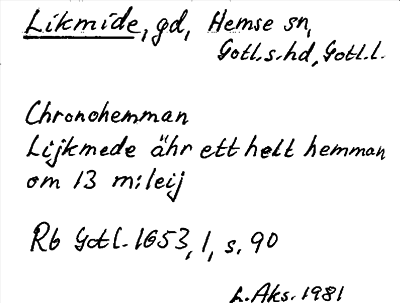 Likmide, gd, Hemse sn,
Gotl.s.hd, Gotl.l.
Chronohemman
Lijkmede ähr ett helt hemman
om 13 m:leij
Rb Gotl. 1653, 1, s. 90
L.Aks. 1981